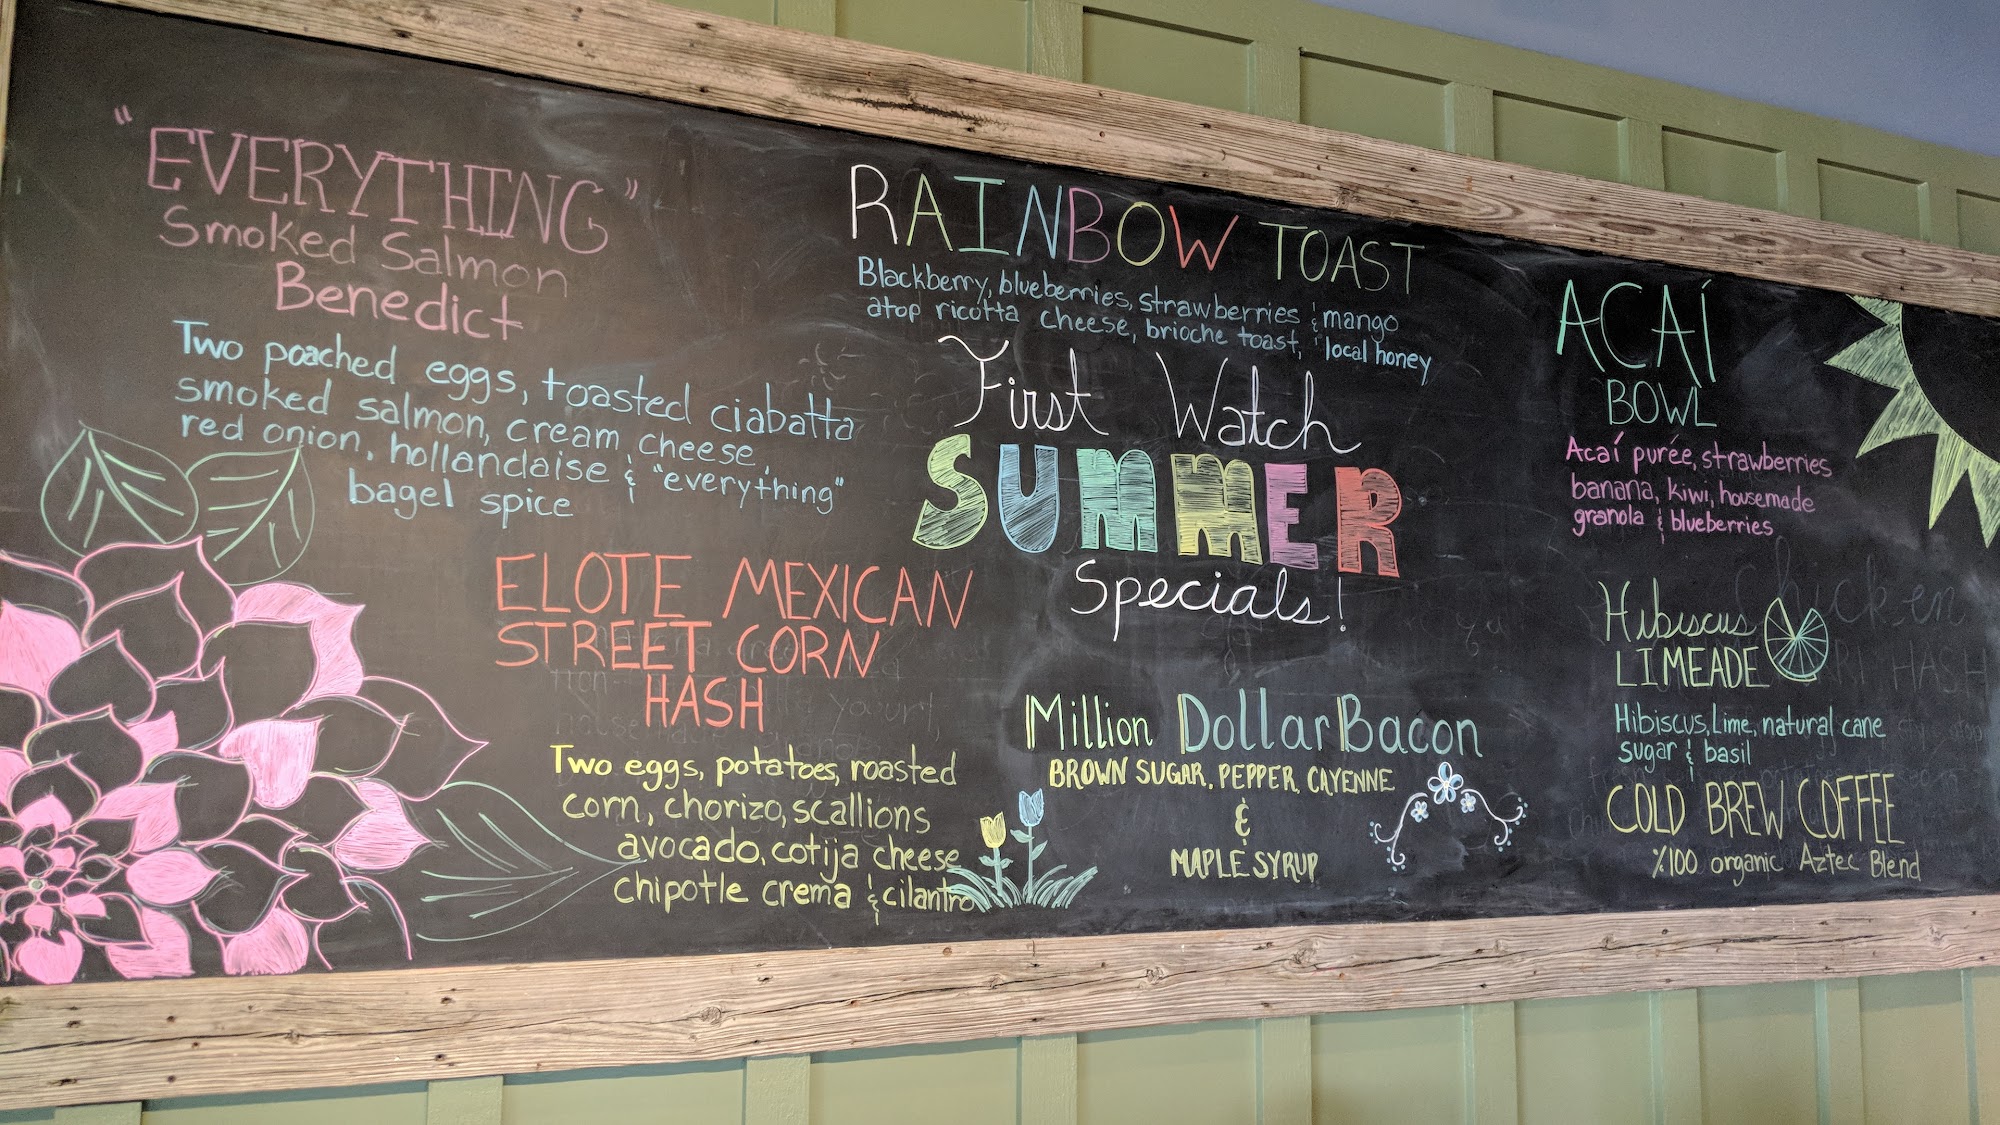 "EVERYTHING"
Smoked Salmon
Benedict
Two poached eggs, toasted ciabatta
smoked salmon, cream cheese,
red onion, hollandaise & "everything"
bagel spice
ELOTE MEXICAN
STREET CORN
HASH
Two eggs, potatoes, roasted
corn, chorizo, scallions
avocado, cotija cheese
chipotle crema & cilantro
RAINBOW TOAST
Blackberry, blueberries, strawberries & mango
atop ricotta cheese, brioche toast, & local honey
First Watch
SUMMER
Specials!
Million Dollar Bacon
BROWN SUGAR, PEPPER, CAYENNE
&
MAPLE SYRUP
ACAÍ
BOWL
Acaí purée, strawberries
banana, kiwi, housemade
granola & blueberries
Hibiscus
LIMEADE
Hibiscus, Lime, natural cane
sugar & basil
COLD BREW COFFEE
%100 organic Aztec Blend